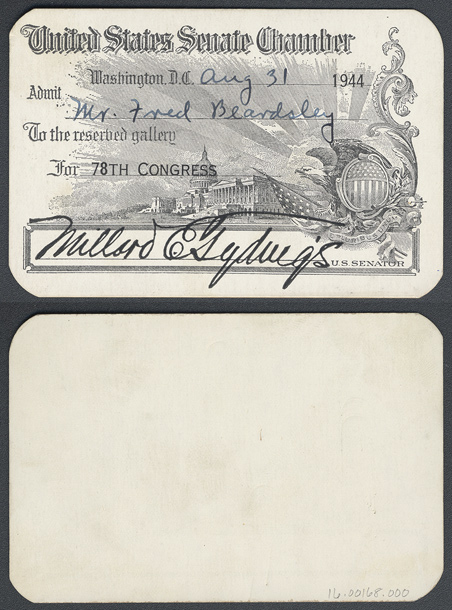 United States Senate Chamber
Washington, D.C. Aug 31 1944
Admit
Mr. Fred Beardsley
To the reserved gallery
For 78TH CONGRESS
Millard E Tydings
U.S. SENATOR
16.00168.000